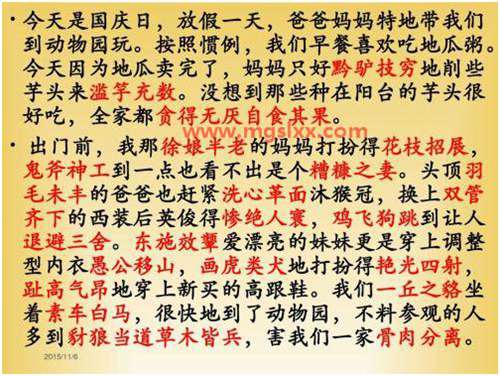 • 今天是国庆日，放假一天，爸爸妈妈特地带我们
到动物园玩。按照惯例，我们早餐喜欢吃地瓜粥。
今天因为地瓜卖完了，妈妈只好黔驴技穷地削些
芋头来滥竽充数。没想到那些种在阳台的芋头很
好吃，全家都贪得无厌自食其果。
www.mgslxx.com
• 出门前，我那徐娘半老的妈妈打扮得花枝招展，
鬼斧神工到一点也看不出是个糟糠之妻。头顶羽
毛未丰的爸爸也赶紧洗心革面沐猴冠，换上双管
齐下的西装后英俊得惨绝人寰，鸡飞狗跳到让人
退避三舍。东施效颦爱漂亮的妹妹更是穿上调整
型内衣愚公移山，画虎类犬地打扮得艳光四射，
趾高气昂地穿上新买的高跟鞋。我们一丘之貉坐
着素车白马，很快地到了动物园，不料参观的人
多到豺狼当道草木皆兵，害我们一家骨肉分离。
2015/11/6